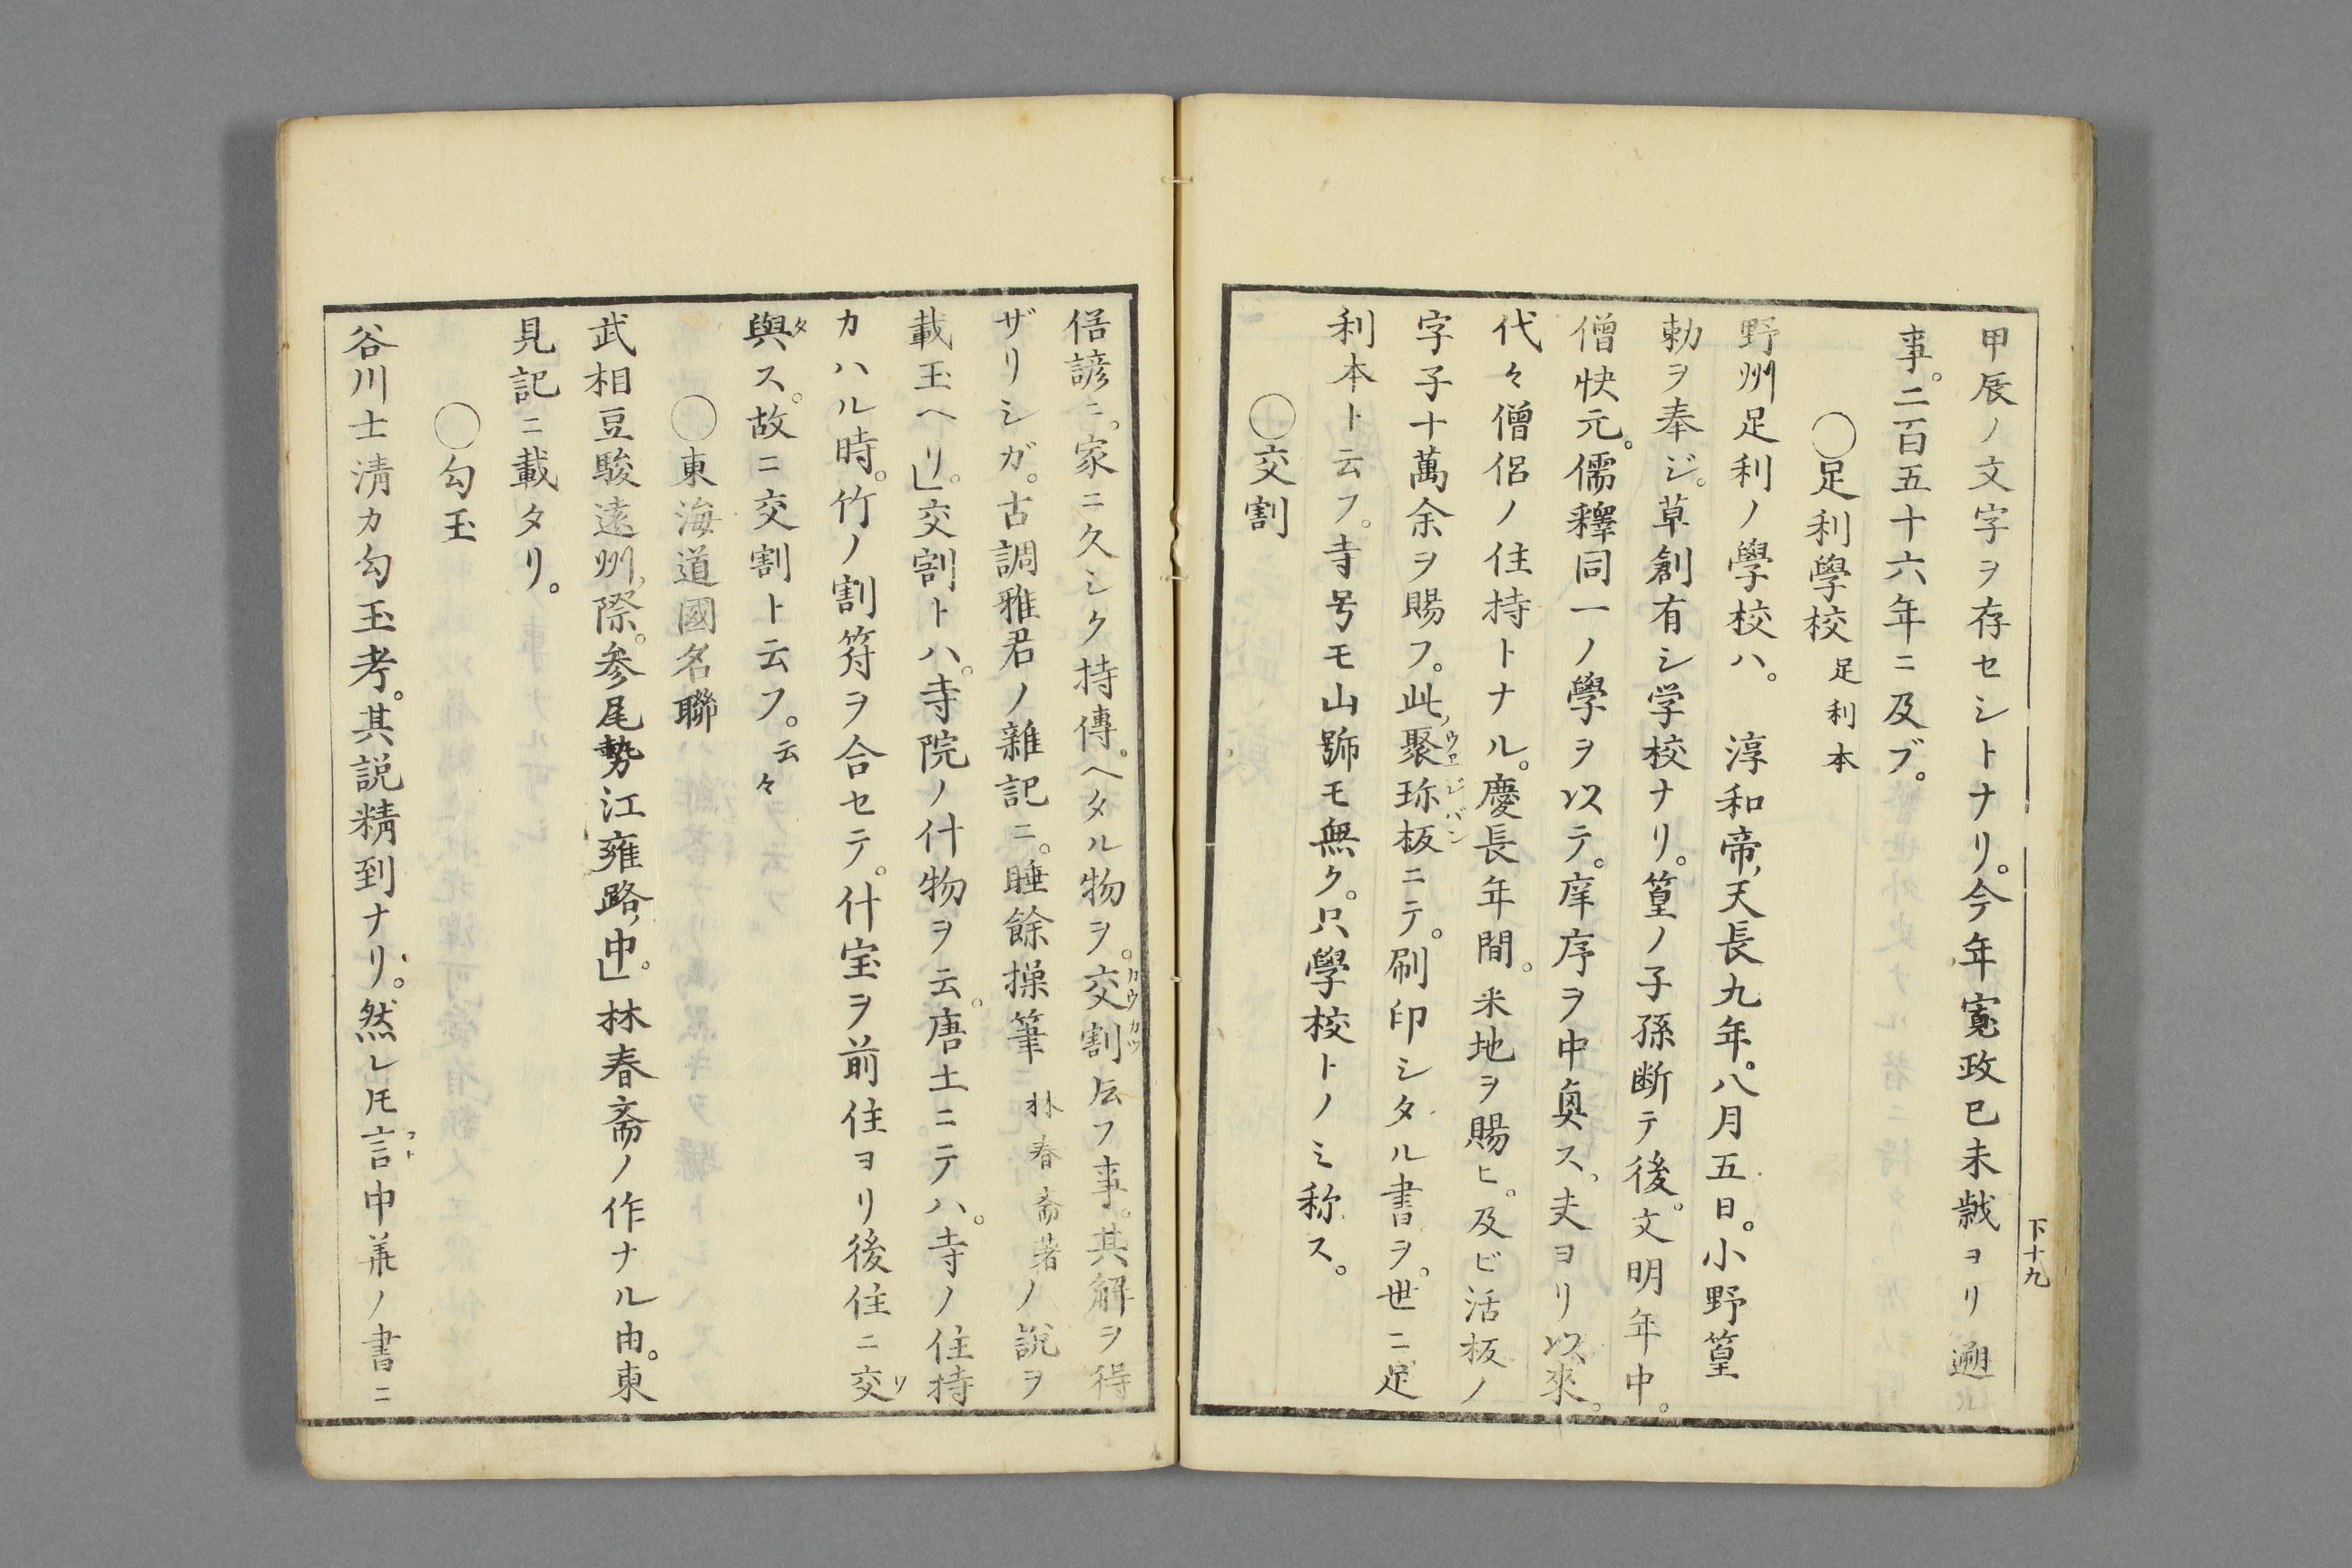 甲辰ノ文字ヲ存セシトナリ。今年寛政己未歳ヨリ遡ル
事。二百五十六年ニ及ブ。
〇足利學校 足利本
野州足利ノ學校ハ。 淳和帝、天長九年。八月五日。小野篁
勅ヲ奉ジ。草創有シ学校ナリ。篁ノ子孫断テ後。文明年中。
僧快元。儒釋同一ノ學ヲ以テ。庠序ヲ中奥ス、夫ヨリ以來。
代々僧侶ノ住持トナル。慶長年間。米地ヲ賜ヒ。及ビ活板ノ
字子十萬余ヲ賜フ。此、聚珎板ニテ。刷印シタル書ヲ。世ニ足
利本ト云フ。寺号モ山號モ無ク。只學校トノミ称ス。
〇交割
下十九
俗諺ニ。家ニ久シク持傳。ヘタル物ヲ。交割ト云フ事。其解ヲ得
ザリシガ。古調雅君ノ雜記ニ。睡餘操筆 林春斎著ノ説ヲ
載玉ヘリ」。交割トハ。寺院ノ什物ヲ云。唐土ニテハ。寺ノ住持
カハル時。竹ノ割符ヲ合セテ。什宝ヲ前住ヨリ後住ニ交リ
與タス。故ニ交割ト云フ。云々
〇東海道國名聯
武相豆駿遠州、際。参尾勢江雍路、中」。林春斎ノ作ナル由。東
見記ニ載タリ。
〇勾玉
谷川士清カ勾玉考。其説精到ナリ。然レ𪜈言中華ノ書ニ